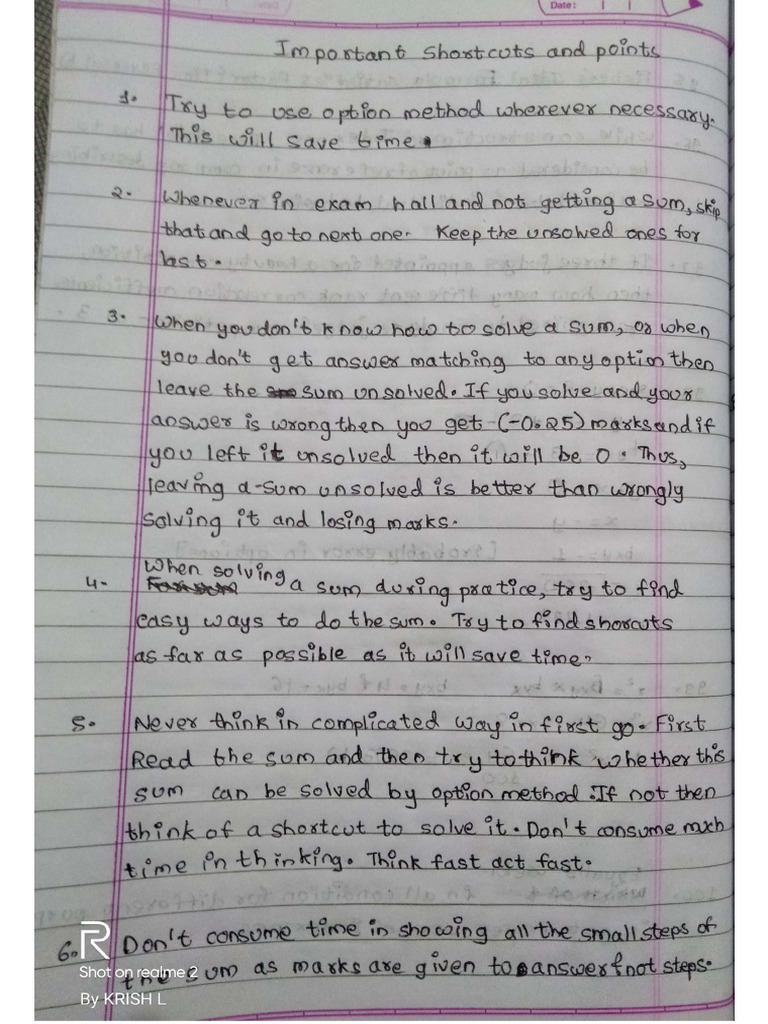 Date:
Important Shortcuts and points
1. Try to use option method wherever necessary.
This will save time.
2. Whenever in exam hall and not getting a sum, skip
that and go to next one. Keep the unsolved ones for
last.
3. When you don't know how to solve a sum, or when
you don't get answer matching to any option then
leave the sum unsolved. If you solve and your
answer is wrong then you get (-0.25) marks and if
you left it unsolved then it will be 0. Thus,
leaving a sum unsolved is better than wrongly
solving it and losing marks.
4. When solving a sum during pratice, try to find
easy ways to do the sum. Try to find shorcuts
as far as possible as it will save time.
5. Never think in complicated way in first go. First
Read the sum and then try to think whether this
sum can be solved by option method. If not then
think of a shortcut to solve it. Don't consume much
time in thinking. Think fast act fast.
6. Don't consume time in showing all the small steps of
the sum as marks are given to answer & not steps.
R
Shot on realme 2
By KRISH L